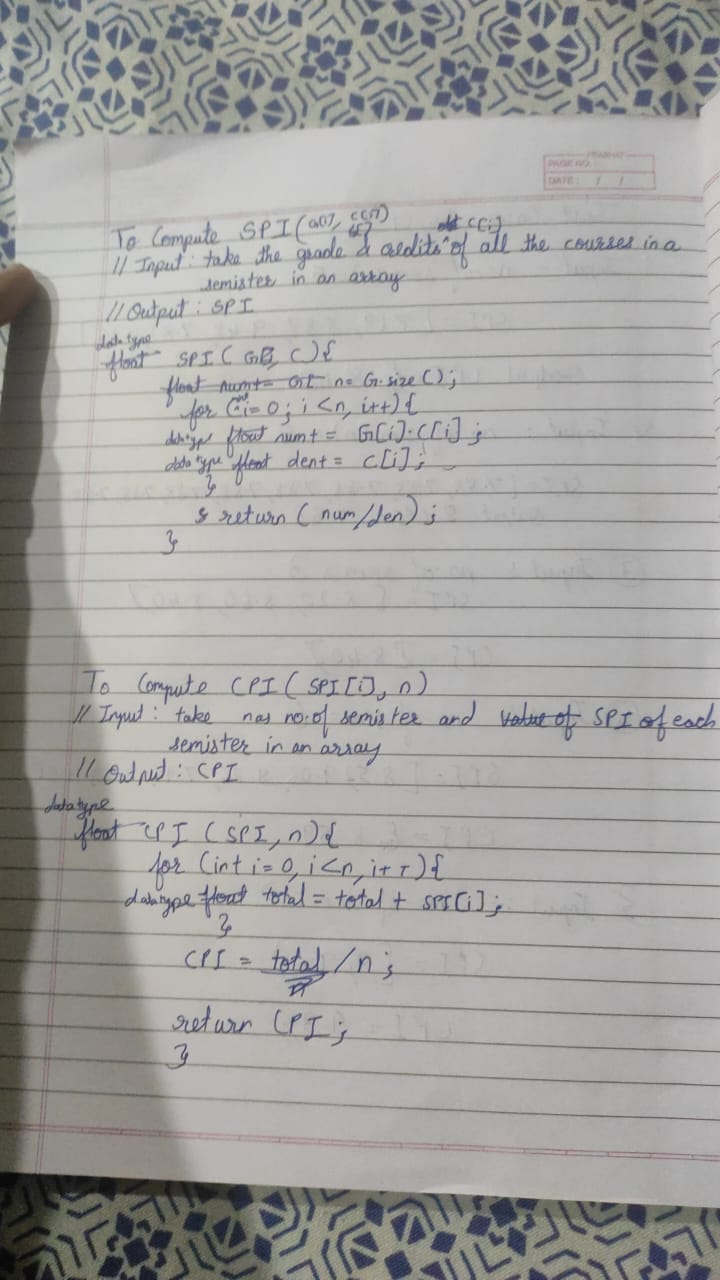 PAGE NO.
DATE: / /
To Compute SPI (G[], C[i])
C[i]
// Input: take the grade & credits of all the courses in a
semister in an array
// Output: SPI
datatype
float SPI ( G, C) {
float num+= n= G.size();
for (int i=0; i<n, i++) {
datatype float num+= G[i]·C[i];
datatype float den+= C[i];
}
return (num/den);
}
To Compute CPI ( SPI[i], n)
// Input: take no. of semister and value of SPI of each
semister in an array
// Output: CPI
datatype
float CPI (SPI, n) {
for (int i=0, i<n, i++) {
datatype float total = total + SPI[i];
}
CPI = total /n;
return CPI;
}